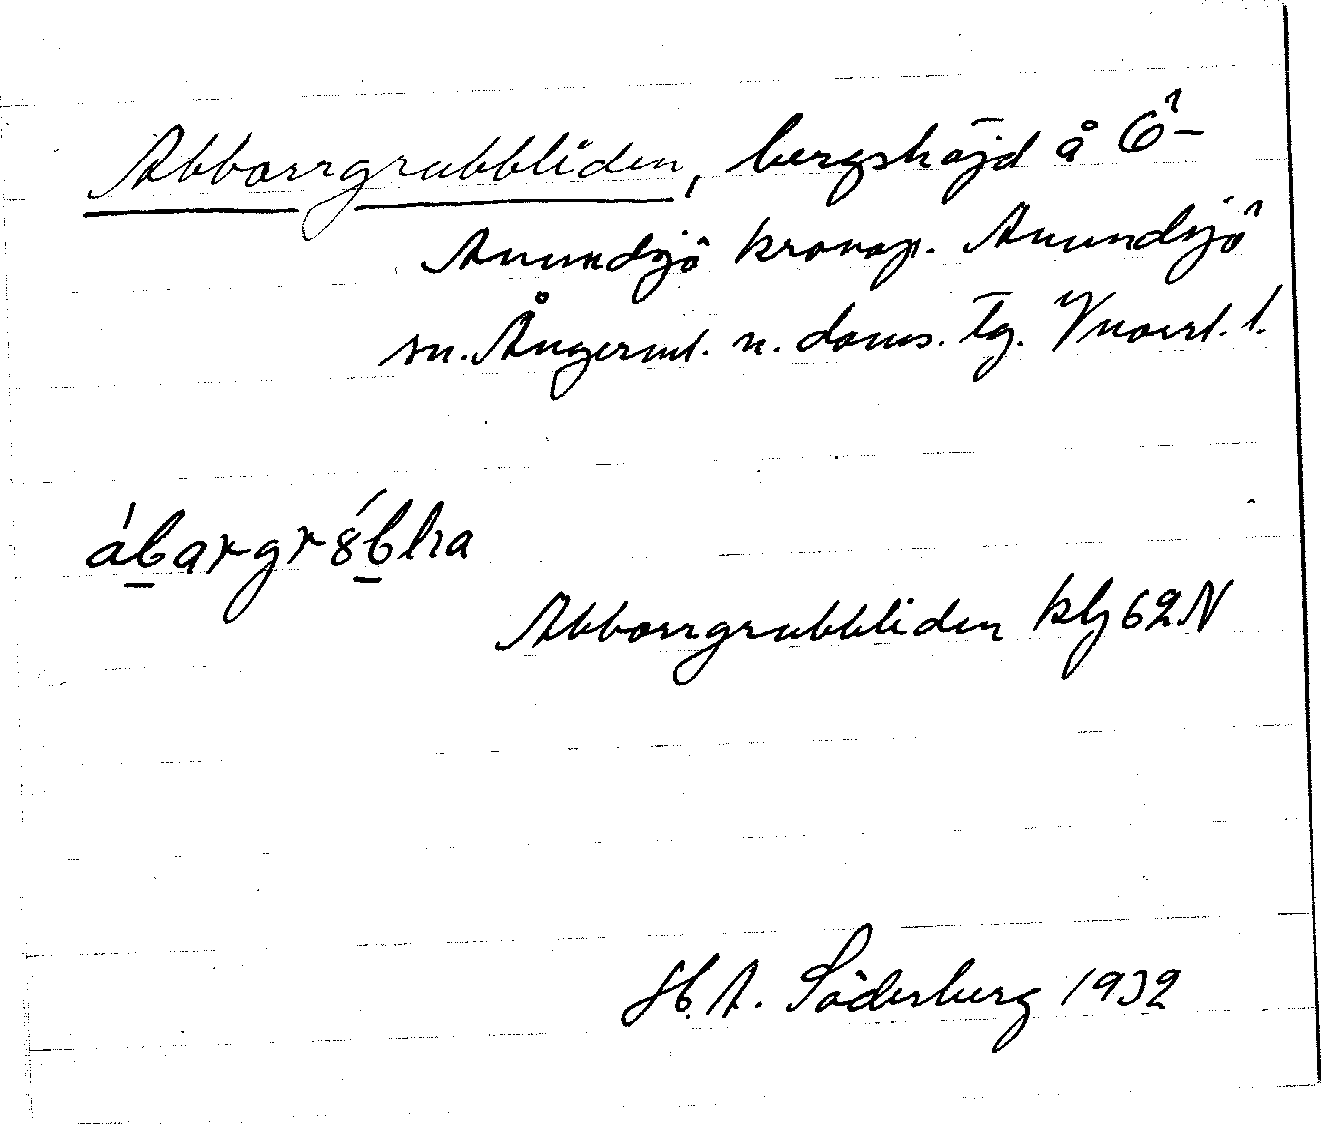 Abborrgrubbliden, bergshöjd å Ö-
Anundsjö kronop. Anundsjö
sn. Ångerml. n. doms. tg. Vnorrl. l.
ábargrǿblia
Abborrgrubbliden kbl 62 N
H. A. Söderberg 1932